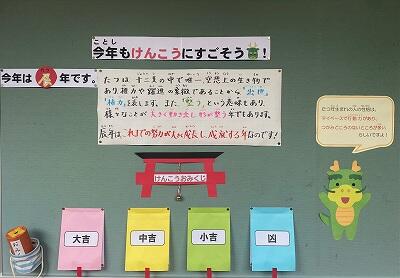 ことし
今年もけんこうにすごそう!
今年は辰年です。
たつは、十二支の中で唯一、空想上の生き物で
あり、権力や躍進の象徴であることから"出世"
"権力"を表します。また、"整う"という意味もあり、
様々なことが大きく動き出し形が整う年でもあります。
辰年は、これまでの努力が人が成長し、成就する年なのです!
たつ年生まれの人の性格は、
マイペースで行動力があり、
つかみどころのないところが多い
らしいですよ!
けんこうおみくじ
大吉
中吉
小吉
凶